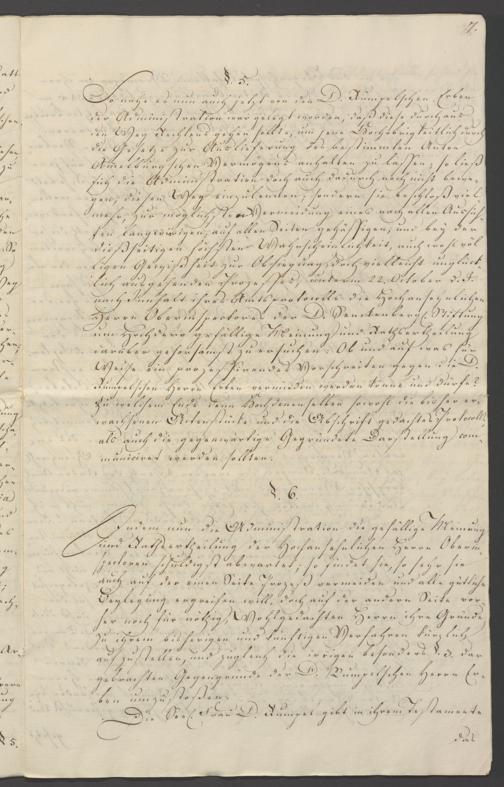 7.
§. 5.
So nahe es nun auch jetzt von den D. Rumpelschen Erben
der Administration war gelegt worden, daß diese durchaus
den Weg Rechtens gehen sollte, um jene Hochobrigkeitlich durch
die Gesetze zur Auslieferung des bestimmten Guten
Vermögens anhalten zu lassen; so ließ
sich die Administration doch auch dadurch noch nicht bewe-
gen, diesen Weg einzuleiten, sondern sie beschloß viel
mehr, zur möglichsten Vermeidung eines nach allen Aussich-
ten langwierigen, auf allen Seiten gehässigen, und bey der
diesseitigen höchsten Wahrscheinlichkeit, auch wohl völ-
ligen Gewißheit zur Obsiegung, doch vielleicht unglück-
lich ausgehenden Prozesses, unterm 22. October d. J.
nach Innhalt ihres Amtsprotocolls die Hochansehnlichen
Herrn Oberinspectores der D. Senckenberg. Stiftung
um Hochdero gefällige Meinung und Rathsertheilung
darüber gehorsamst zu ersuchen: Ob und auf was für
Weise ein prozessirendes Vorschreiten gegen die D.
Rumpelschen Herrn Erben vermieden werden könne und dürfe?
zu welchem Ende denn Hochdenenselben sowohl die bisher er-
wachsenen Aktenstücke und die Abschrift gedachten Protocolls,
als auch die gegenwärtige Gegründete Darstellung com-
municiret werden sollten.
§. 6.
Indem nun die Administration die gefällige Meinung
und Rathsertheilung der Hochansehnlichen Herrn Oberin-
spectoren schuldigst abwartet; so findet sie, so sehr sie
auch auf der einen Seite Prozeß vermeiden und alle gütliche
Beylegung ergreifen will, doch auf der andern Seite vor-
her noch für nöthig, Wohlgedachten Herrn ihre Gründe
zu ihrem bisherigen und künftigen Verfahren kürzlich
aufzustellen, und zugleich die irrigen besonders §. 3. dar
gebrachten Gegengründe der D. Rumpelschen Herrn Er-
ben umzustoßen.
Die Seel. Frau D. Rumpel gibt in ihrem Testamente
das
§ 5.